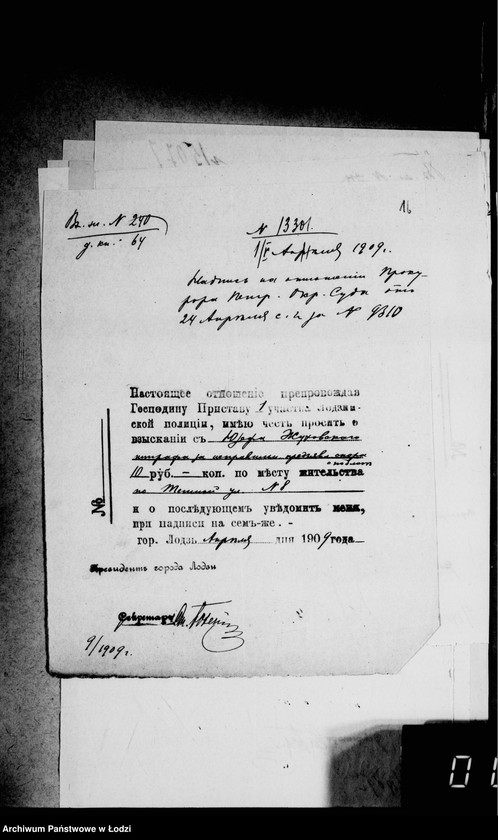 16
Вх. м. N 240
д. кн. 64
N 13301.
1/V Апреля 1909 г.
Надпись на отношении Проку-
рора Петр. Окр. Суда отъ
24 Апреля с. г. за N 9310
Настоящее отношеніе препровождая
Господину Приставу 1 участка Лодзин-
ской полиціи, имѣю честь просить о
взысканіи съ Юзефа Жуковского
штрафа за
10 руб. – коп. по мѣсту жительства
по ул. N 8
и о послѣдующемъ увѣдомить меня,
при надписи на семъ-же. -
гор. Лодзь Апреля дня 1909 года
№
Президентъ города Лодзи
Секретарь
9/1909 г.
Archiwum Państwowe w Łodzi